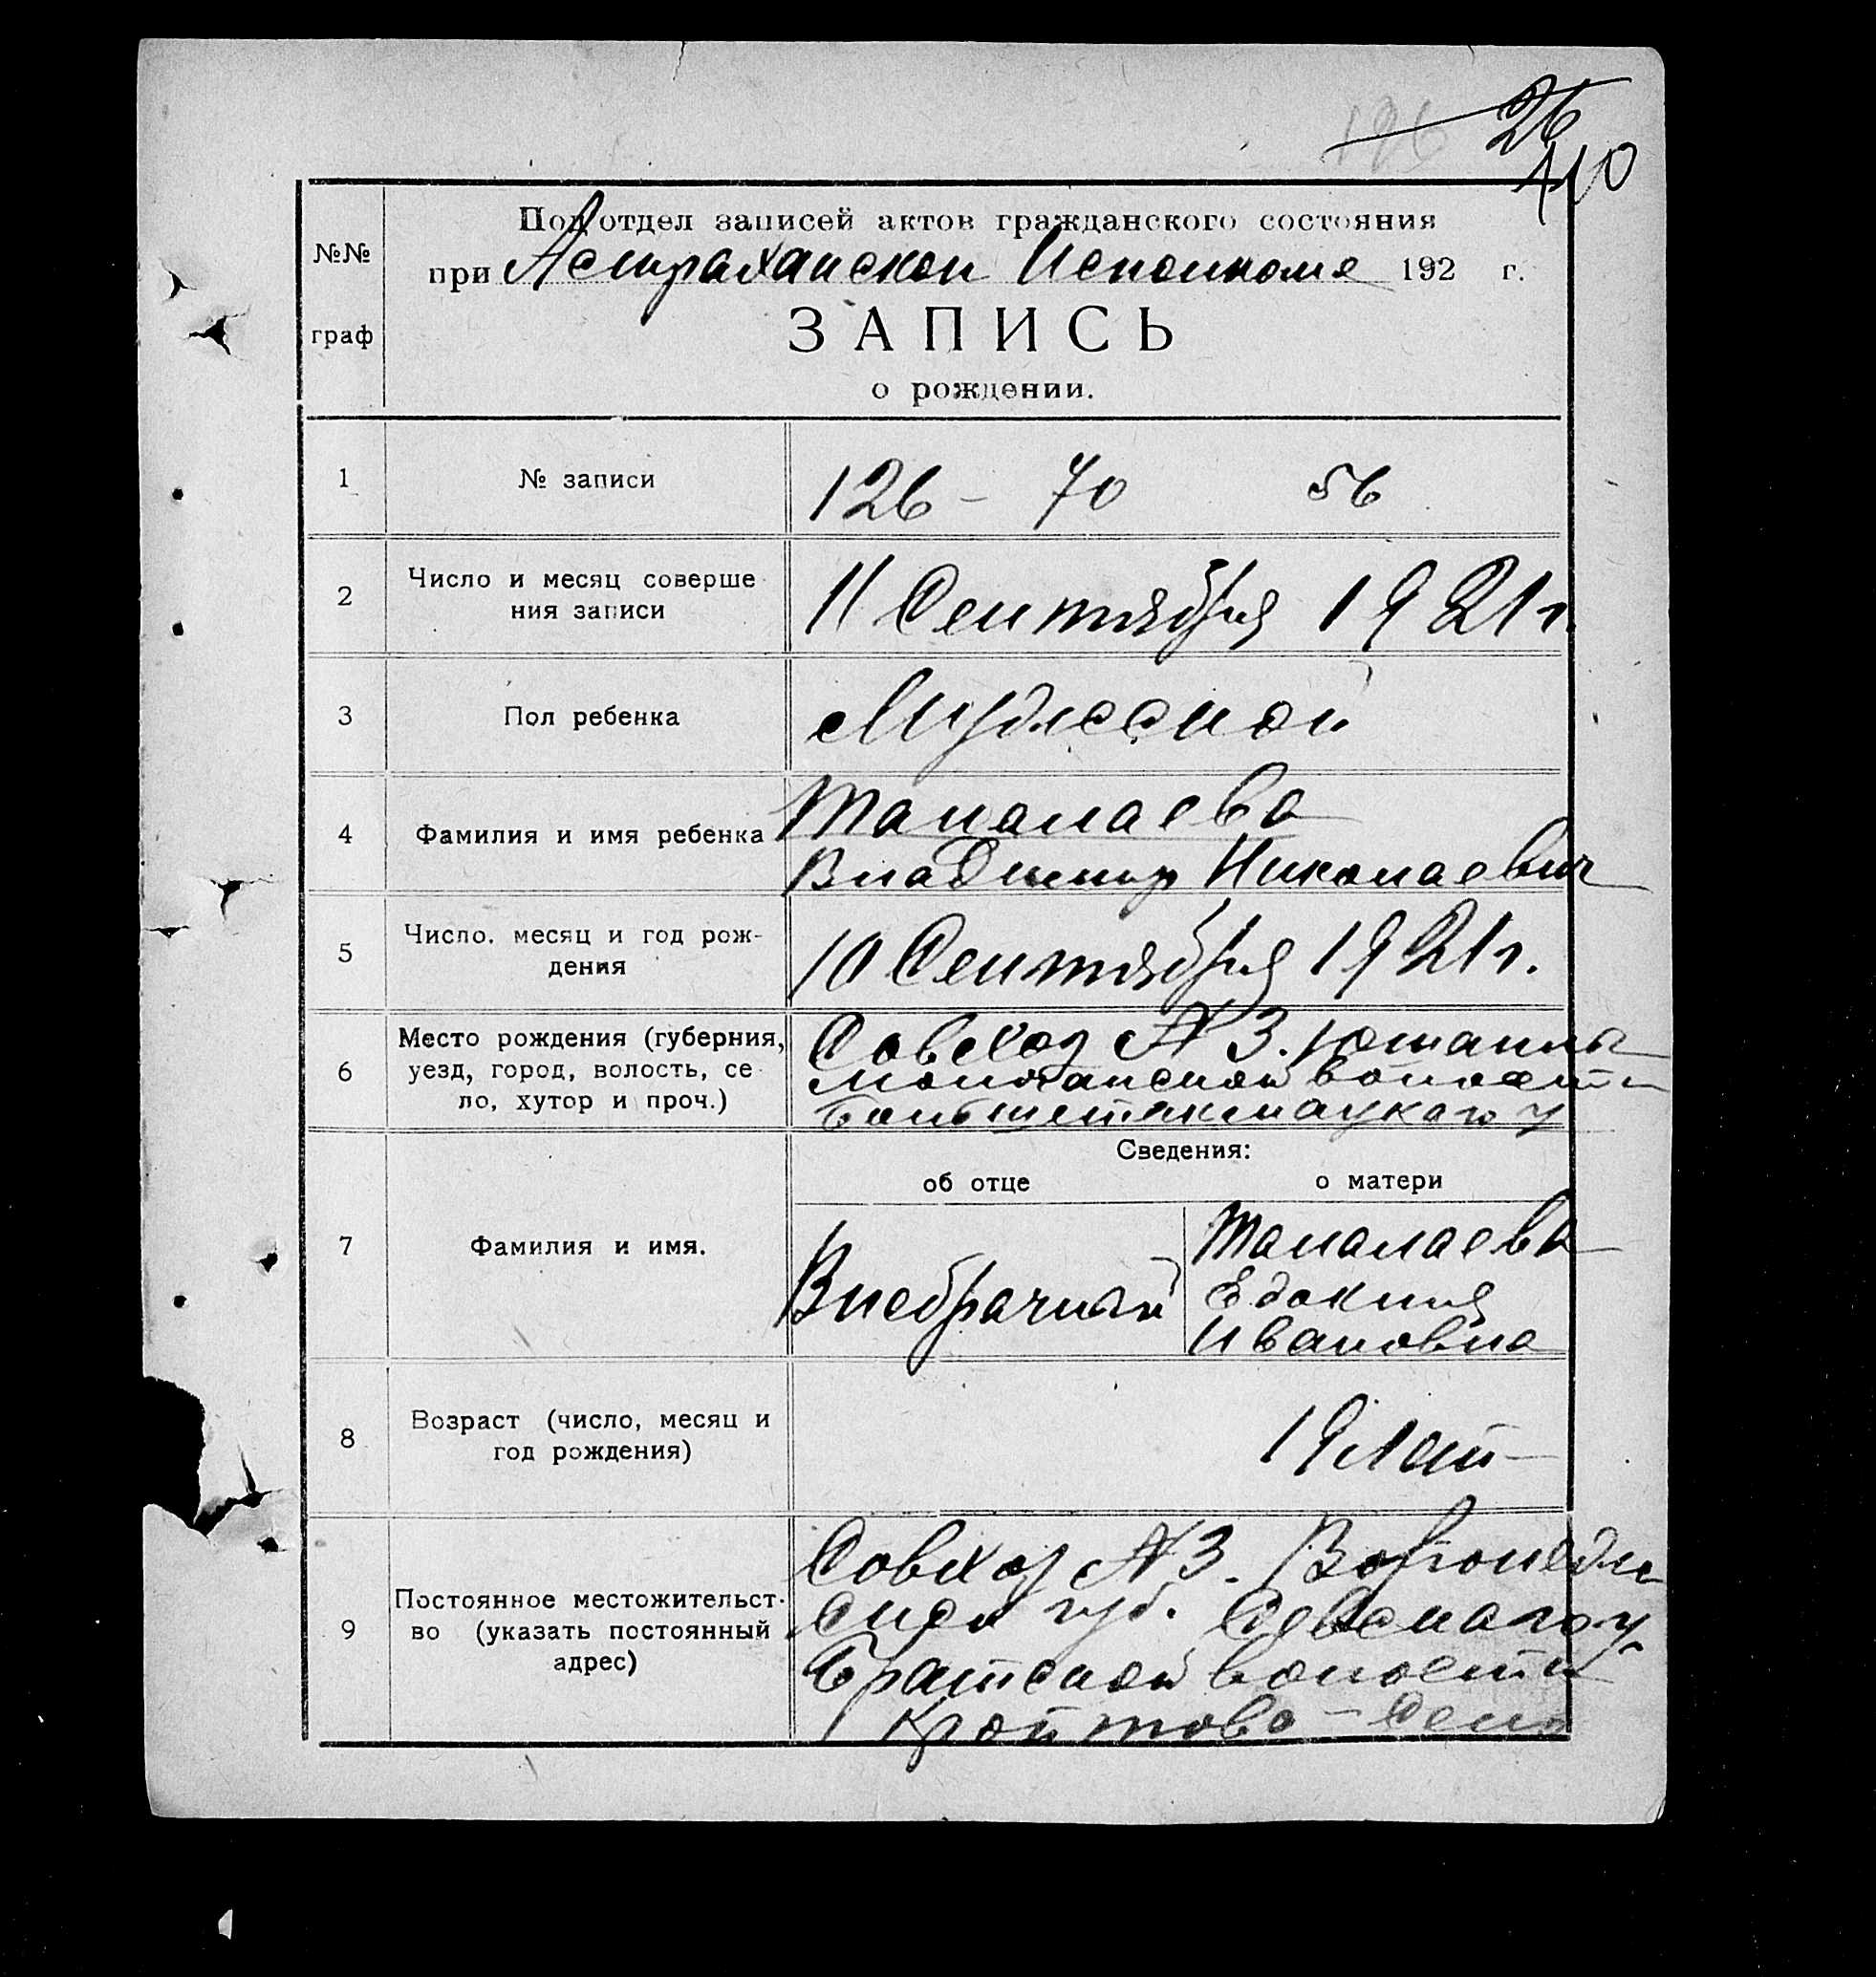 126
26
110
Подотдел записей актов гражданского состояния
№№
при Астраханском Исполкоме 192 г.
ЗАПИСЬ
граф
о рождении.
1
№ записи
126 - 70 56
2
Число и месяц соверше
ния записи
11 Сентября 1921 г.
3
Пол ребенка
Мужеской
4
Фамилия и имя ребенка
Таналаева
Владимир Николаевич
5
Число, месяц и год рож-
дения
10 Сентября 1921 г.
6
Место рождения (губерния,
уезд, город, волость, се
ло, хутор и проч.)
Совхоз № 3.
волости
7
Фамилия и имя.
Сведения:
об отце
о матери
Внебрачный
Таналаева
Едокия
Ивановна
8
Возраст (число, месяц и
год рождения)
19 лет
9
Постоянное местожительст-
во (указать постоянный
адрес)
Совхоз № 3. Воронеж
ской губ. у
Братской волости